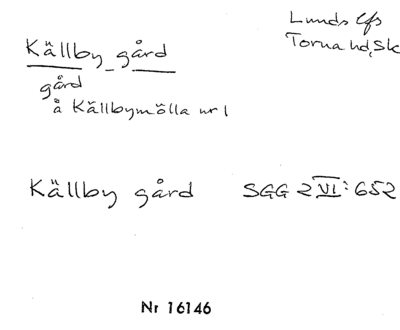 Lunds lfs
Torna hd, Sk
Källby gård
gård
å Källbymölla nr 1
Källby gård SGG 2 VI: 652
Nr 16146